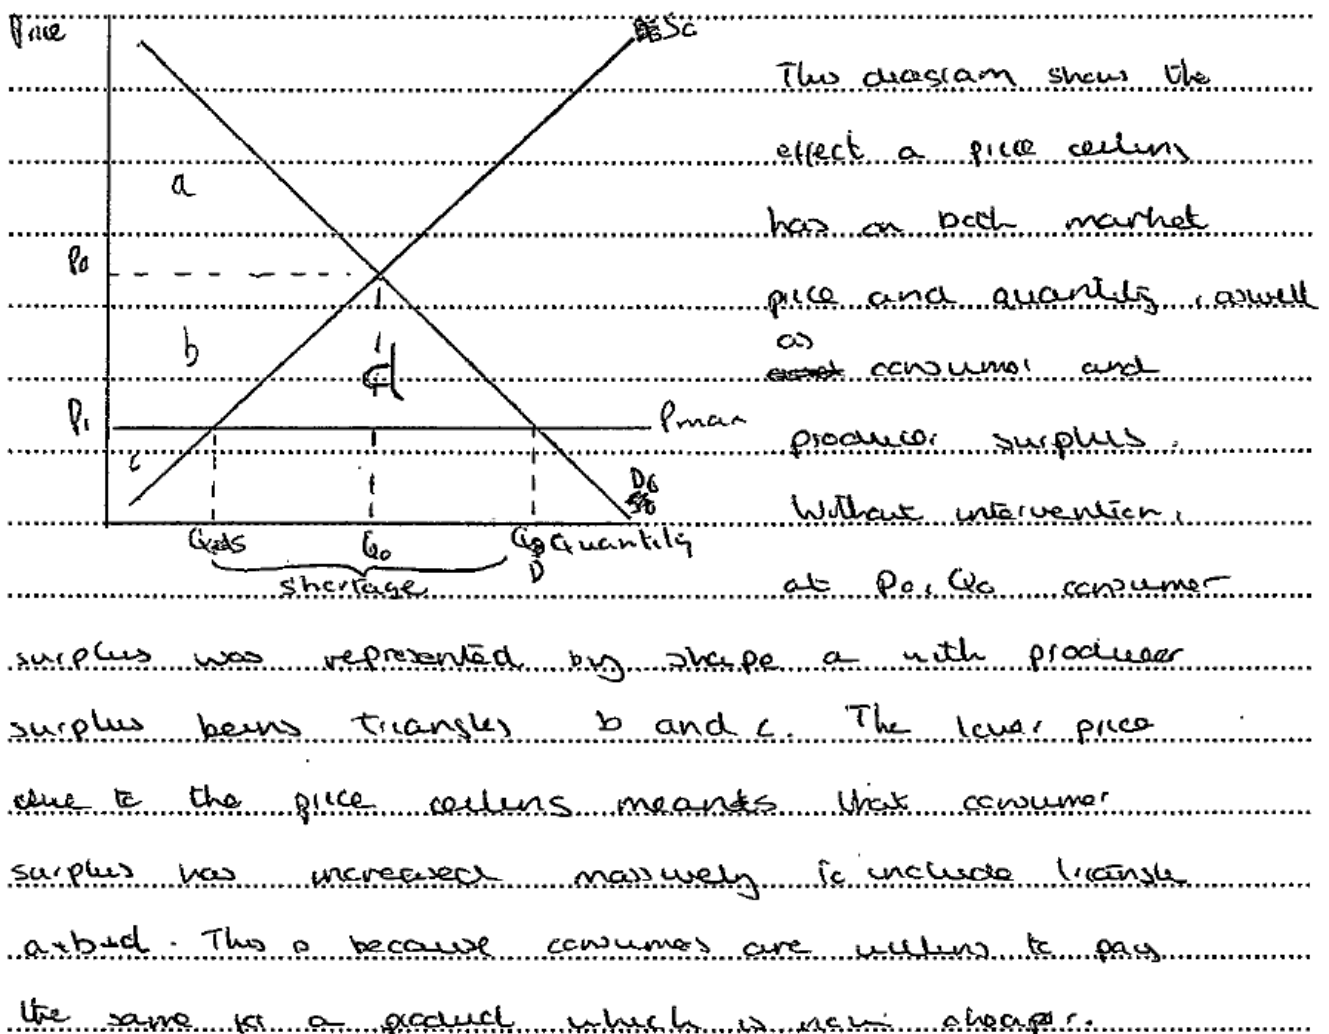 Price
S0
a
P0
b
d
P1
Pmax
c
D0
QS
Q0
QD
Quantity
shortage
This diagram shows the
effect a price ceiling
has on both market
price and quantity, aswell
as consumer and
producer surplus.
Without intervention,
at P0, Q0 consumer
surplus was represented by shape a with producer
surplus being triangles b and c. The lower price
due to the price ceiling means that consumer
surplus has increased massively to include triangle
a+b+d. This is because consumers are willing to pay
the same for a product which is now cheaper.